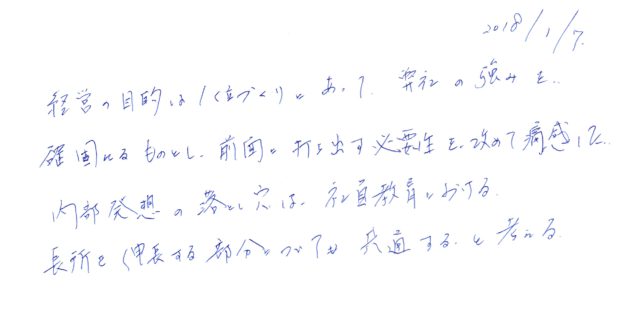 2018/1/7.
経営の目的は位づくりにあって、弊社の強みを、
確固たるものとし、前面に打ち出す必要性を、改めて痛感した。
内部発想の落とし穴は、社員教育における
長所を伸長する部分についても共通する。と考える。